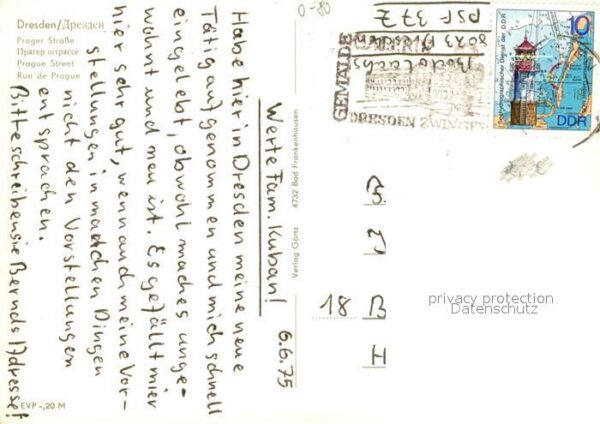 Dresden/Дрезден
Prager Straße
Прагер штрассе
Prague Street
Rue de Prague
6.6.75
Werte Fam. Kuban!
Habe hier in Dresden meine neue
Tätig aufgenommen und mich schnell
eingelebt, obwohl maches unge-
wohnt und neu ist. Es gefällt mier
hier sehr gut, wenn auch meine Vor-
stellungen in manchen Dingen
nicht den Vorstellungen
entsprachen.
Bitte schreiben sie Bernds Adresse!
EVP -,20 M
Verlag Görtz 4732 Bad Frankenhausen
0-80
8023 Dresden
PSF 377
GEMÄLDE
GALERIE
DRESDEN ZWINGER
Seehydrographischer Dienst der DDR
10
DDR
B
J
18 B
H
privacy protection
Datenschutz